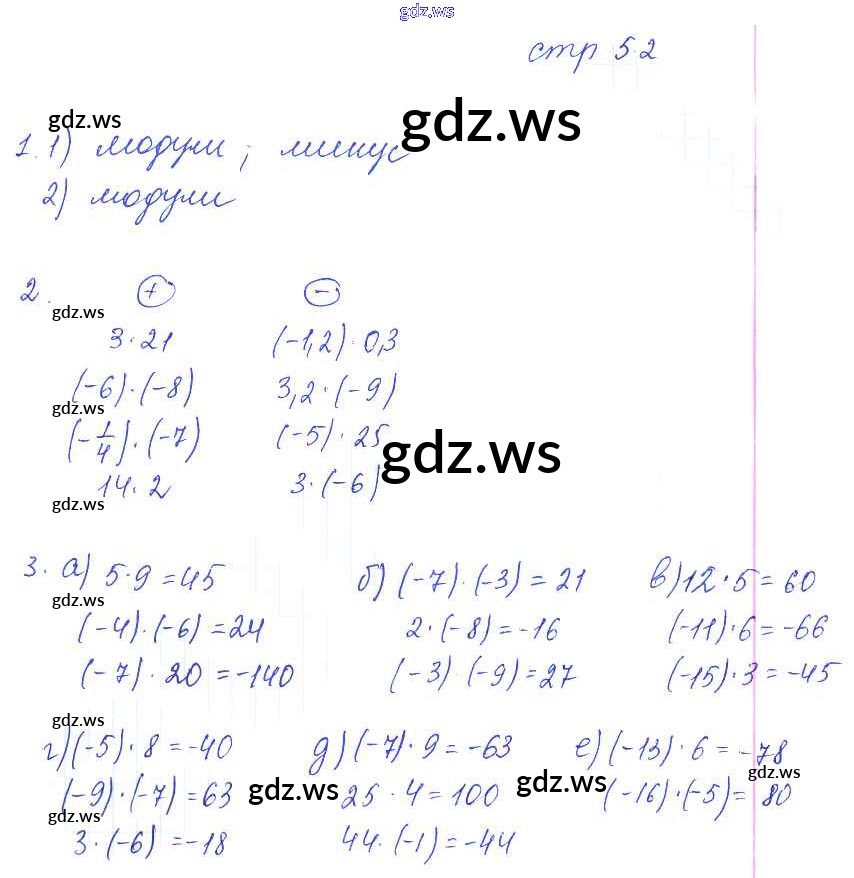 gdz.ws
стр 52
gdz.ws gdz.ws
1. 1) модули ; минус
2) модули
2. + −
gdz.ws
3·21 (-1,2)·0,3
(-6)·(-8) 3,2·(-9)
gdz.ws
(-1/4)·(-7) (-5)·25
gdz.ws
14·2 3·(-6)
gdz.ws
3. а) 5·9=45 б) (-7)·(-3)=21 в) 12·5=60
gdz.ws
(-4)·(-6)=24 2·(-8)=-16 (-11)·6=-66
(-7)·20=-140 (-3)·(-9)=27 (-15)·3=-45
gdz.ws
г) (-5)·8=-40 д) (-7)·9=-63 е) (-13)·6=-78
gdz.ws
(-9)·(-7)=63 gdz.ws 25·4=100 gdz.ws (-16)·(-5)=80
gdz.ws
3·(-6)=-18 44·(-1)=-44